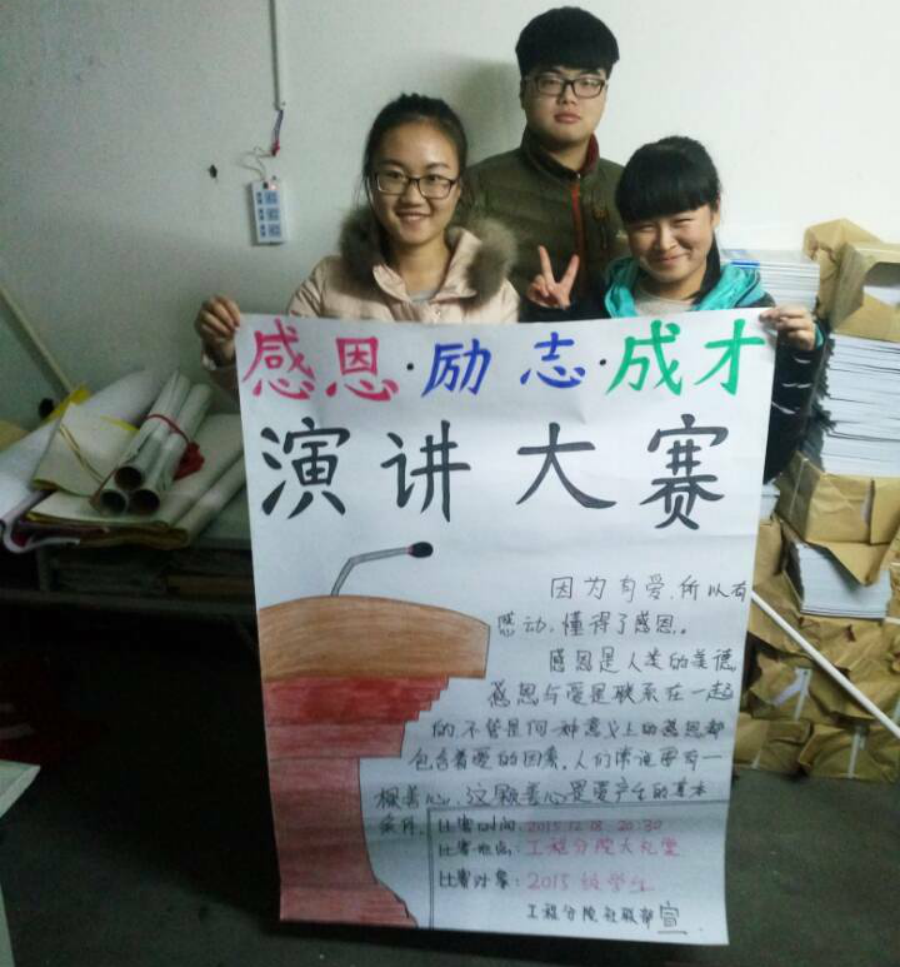 感恩·励志·成才
演讲大赛
因为有爱,所以有
感动,懂得了感恩。
感恩是人类的美德,
感恩与爱是联系在一起
的,不管是何种意义上的感恩都
包含着爱的因素。人们常说要有一
颗善心,这颗善心是爱产生的基本
条件。
比赛时间:2015.12.18 20:30
比赛地点:工程分院大礼堂
比赛对象:2015级学生
工程分院社联部宣